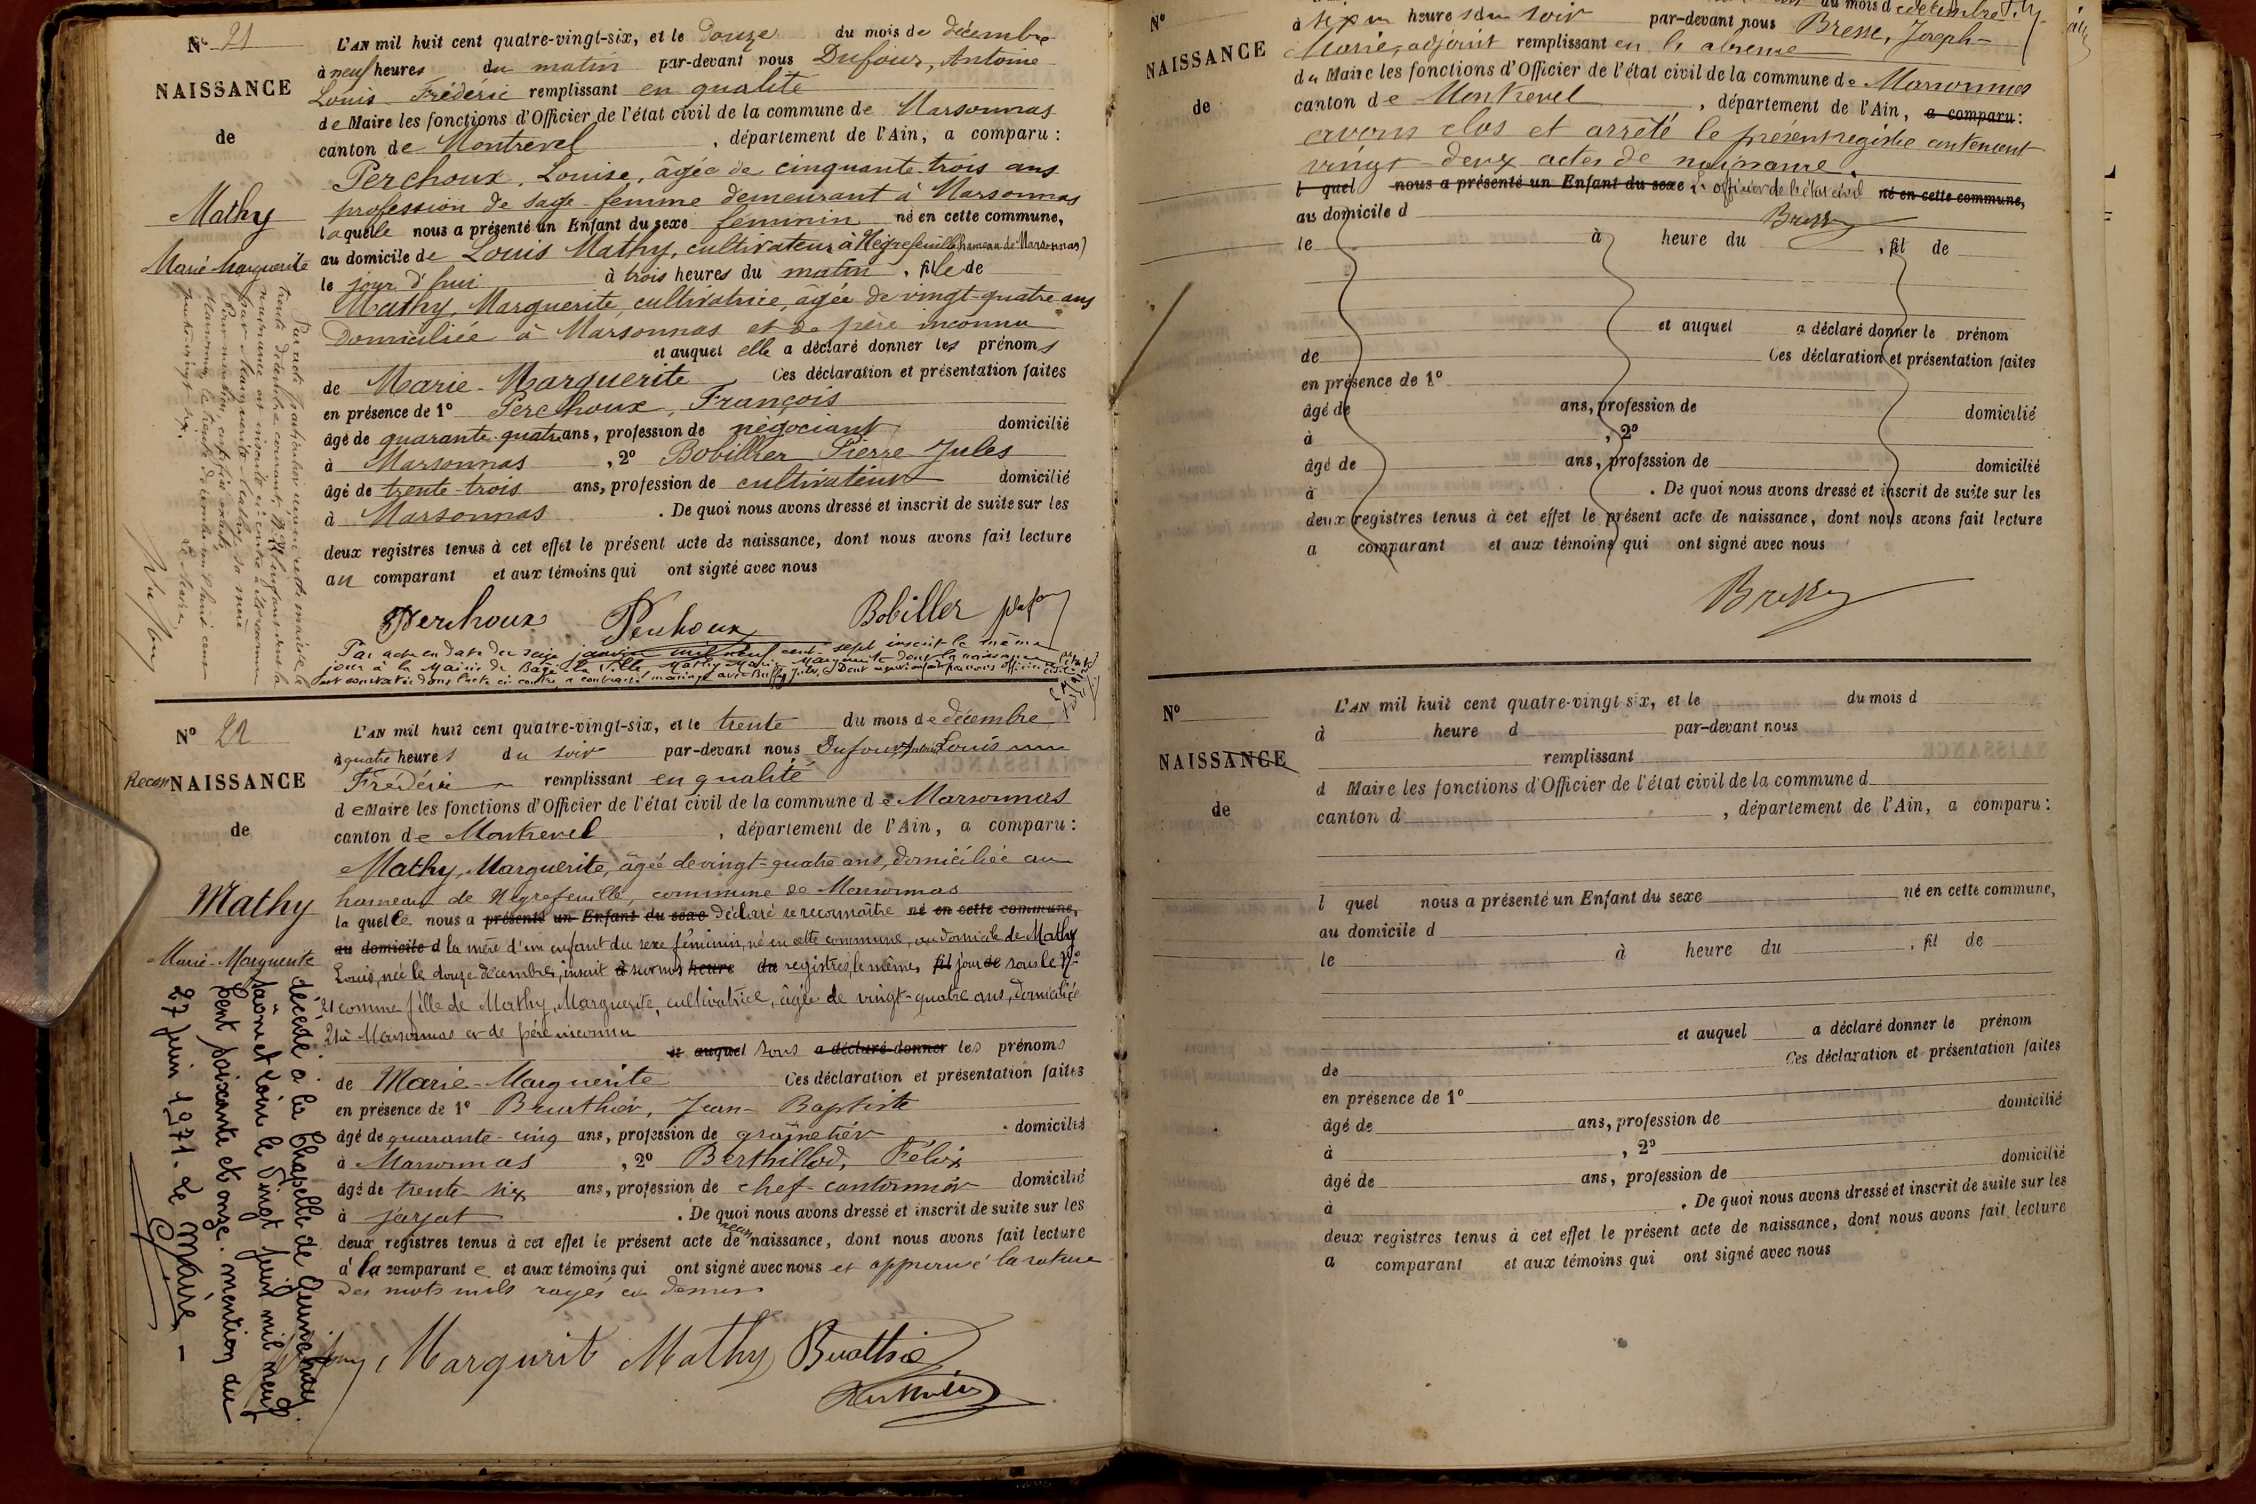 N° 21
NAISSANCE
de
Mathy
Marie Marguerite
L'AN mil huit cent quatre-vingt-six, et le douze du mois de décembre
à neuf heures du matin par-devant nous Dufour, Antoine
Louis Fréderic remplissant en qualité
de Maire les fonctions d'Officier de l'état civil de la commune de Marsonnas
canton de Montrevel, département de l'Ain, a comparu :
Perchoux, Louise, âgée de cinquante-trois ans
profession de sage-femme demeurant à Marsonnas
laquelle nous a présenté un Enfant du sexe féminin né en cette commune,
au domicile de Louis Mathy, cultivateur à Négrefeuille (hameau de Marsonnas)
le jour d'hui à trois heures du matin, fille de
Mathy, Marguerite, cultivatrice, âgée de vingt-quatre ans
Domiciliée à Marsonnas et de père inconnu
et auquel elle a déclaré donner les prénoms
de Marie-Marguerite Ces déclaration et présentation faites
en présence de 1° Perchoux, François
âgé de quarante-quatre ans, profession de négociant domicilié
à Marsonnas, 2° Bobillier Pierre Jules
âgé de trente-trois ans, profession de cultivateur domicilié
à Marsonnas. De quoi nous avons dressé et inscrit de suite sur les
deux registres tenus à cet effet le présent acte de naissance, dont nous avons fait lecture
au comparant et aux témoins qui ont signé avec nous
Perchoux Perchoux Bobiller
Par acte en date du seize janvier mil neuf cent-sept inscrit le même
jour à la Mairie de Bâgé-la-Ville, Mathy Marie Marguerite dont la naissance
est constatée dans l'acte ci-contre, a contracté mariage avec
N° 22
Recon NAISSANCE
de
Mathy
Marie-Marguerite
décédé à la Chapelle de Guinchay
Saône et Loire le vingt juin mil neuf
cent soixante et onze. mention du
27 juin 1971. Le Maire,
L'AN mil huit cent quatre-vingt-six, et le trente du mois de décembre
à quatre heures du soir par-devant nous Dufour Antoine Louis
Frédéric remplissant en qualité
de Maire les fonctions d'Officier de l'état civil de la commune de Marsonnas
canton de Montrevel, département de l'Ain, a comparu :
Mathy, Marguerite, âgée de vingt-quatre ans, domiciliée au
hameau de Négrefeuille, commune de Marsonnas
laquelle nous a présenté un Enfant du sexe déclaré se reconnaître né en cette commune,
au domicile d la mère d'un enfant du sexe féminin, né en cette commune, au domicile de Mathy
Louis, née le douze décembre, inscrit à sur nos heure du registres, le même, fil jour de sous le N°
21 comme fille de Mathy, Marguerite, cultivatrice, âgée de vingt-quatre ans, domiciliée
à Marsonnas et de père inconnu
et auquel sous a déclaré donner les prénoms
de Marie-Marguerite Ces déclaration et présentation faites
en présence de 1° Buathier, Jean-Baptiste
âgé de quarante-cinq ans, profession de grainetier domicilié
à Marsonnas, 2° Berthillod, Félix
âgé de trente-six ans, profession de chef-cantonnier domicilié
à Jayat. De quoi nous avons dressé et inscrit de suite sur les
deux registres tenus à cet effet le présent acte de naissance, dont nous avons fait lecture
à la comparante et aux témoins qui ont signé avec nous et approuvé la rature
des mots nuls rayés ci-dessus
Marguerite Mathy Buathier
N°
NAISSANCE
de
du mois d décembre
à six heures du soir par-devant nous Bresse, Joseph-
Marie, adjoint remplissant en l'absence
du Maire les fonctions d'Officier de l'état civil de la commune de Marsonnas
canton de Montrevel, département de l'Ain, a comparu :
avons clos et arrêté le présent registre contenant
vingt-deux actes de naissance.
l quel nous a présenté un Enfant du sexe L'officier de l'état civil né en cette commune,
au domicile d Bresse
le à heure du , fil de
et auquel a déclaré donner le prénom
de Ces déclaration et présentation faites
en présence de 1°
âgé de ans, profession de domicilié
à , 2°
âgé de ans, profession de domicilié
à . De quoi nous avons dressé et inscrit de suite sur les
deux registres tenus à cet effet le présent acte de naissance, dont nous avons fait lecture
a comparant et aux témoins qui ont signé avec nous
Bresse
N°
NAISSANCE
de
L'AN mil huit cent quatre-vingt-six, et le du mois d
à heure d par-devant nous
remplissant
d Maire les fonctions d'Officier de l'état civil de la commune d
canton d , département de l'Ain, a comparu :
l quel nous a présenté un Enfant du sexe né en cette commune,
au domicile d
le à heure du , fil de
et auquel a déclaré donner le prénom
de Ces déclaration et présentation faites
en présence de 1°
âgé de ans, profession de domicilié
à , 2°
âgé de ans, profession de domicilié
à . De quoi nous avons dressé et inscrit de suite sur les
deux registres tenus à cet effet le présent acte de naissance, dont nous avons fait lecture
a comparant et aux témoins qui ont signé avec nous